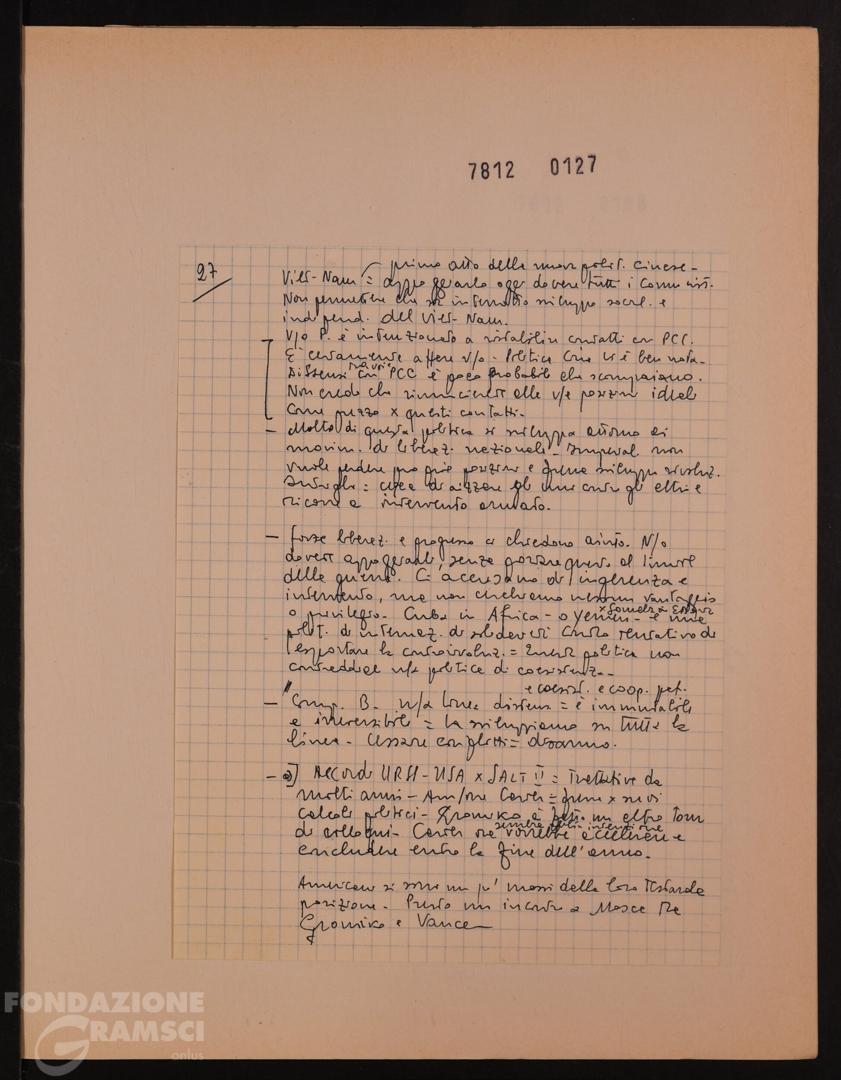 7812 0127
27
primo atto della nuova polit. cinese -
Viet-Nam = appoggiarlo oggi dovere tutti i comunisti.
Non permettere che sia interrotto sviluppo social. e
independ. del Viet-Nam.
V/o P. è intenzionato a ristabilire contatti con PCC.
È certamente affare v/o - Politica Cina vi è ben nota -
Dissensi con PCC è poco probabile che scompaiano.
Non credo che rinuncierete alle v/e posizioni ideali
come prezzo x questi contatti -
- Molto di questa politica si sviluppa attorno ai
movim. di liberaz. nazionali - Imperial. non
vuole perdere proprie posizioni e frena sviluppo rivoluz.
= cerca di aizzare gli uni contro gli altri e
ricorre a intervento armato.
- forze liberaz. e progresso ci chiedono aiuto. N/o
dovere appoggiarli, senza portare questo al limite
della guerra. Ci accusano di ingerenza e
intervento, ma non cerchiamo nessun vantaggio
o privilegio - Cuba in Africa - o Yemen - è una
x Somalia
polit. di internaz. di solidarietà contro tentativo di
esportare la controrivoluz. = Questa politica non
contraddice n/a politica di coesistenza -
e coesist. e coop. pacif.
- Comp. B. n/a linea distens = è immutabile
e irreversibile = la sviluppiamo su tutta la
linea - Cessare conflitti = disarmo.
- a] Accordo URSS-USA x SALT II = Trattative da
molti anni - Am/ne Carter = frena x suoi
calcoli politici - Gromiko è un altro tour
di colloqui - Carter ora vorrebbe accellerare e
sembra intenzione
concludere entro la fine dell'anno.
Americani si sono un po' mossi dalla loro testarda
posizione - Presto un incontro a Mosca tra
Gromiko e Vance -
FONDAZIONE
GRAMSCI
onlus